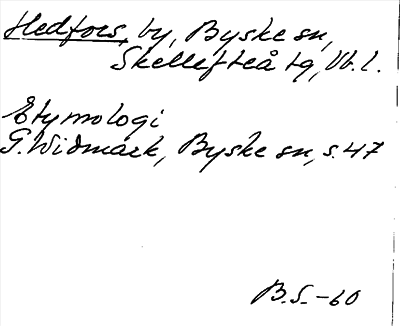 Hedfors, by, Byske sn,
Skellefteå tg, Vb. l.
Etymologi
G. Widmark, Byske sn, s. 47
B.S.-60